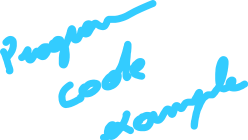 Program
code
example